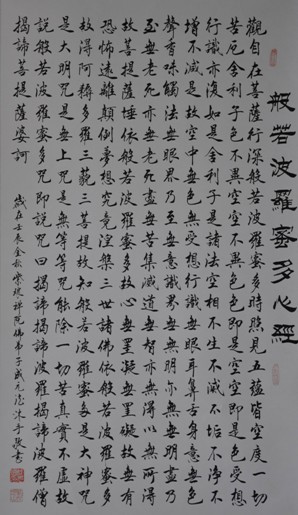 般若波羅蜜多心經
觀自在菩薩行深般若波羅蜜多時照見五蘊皆空度一切
苦厄舍利子色不異空空不異色色即是空空即是色受想
行識亦復如是舍利子是諸法空相不生不滅不垢不淨不
增不減是故空中無色無受想行識無眼耳鼻舌身意無色
聲香味觸法無眼界乃至無意識界無無明亦無無明盡乃
至無老死亦無老死盡無苦集滅道無智亦無得以無所得
故菩提薩埵依般若波羅蜜多故心無罣礙無罣礙故無有
恐怖遠離顛倒夢想究竟涅槃三世諸佛依般若波羅蜜多
故得阿耨多羅三藐三菩提故知般若波羅蜜多是大神咒
是大明咒是無上咒是無等等咒能除一切苦真實不虛故
說般若波羅蜜多咒即說咒曰揭諦揭諦波羅揭諦波羅僧
揭諦菩提薩婆訶
歲在壬辰金秋禪院佛弟子元沐手敬書